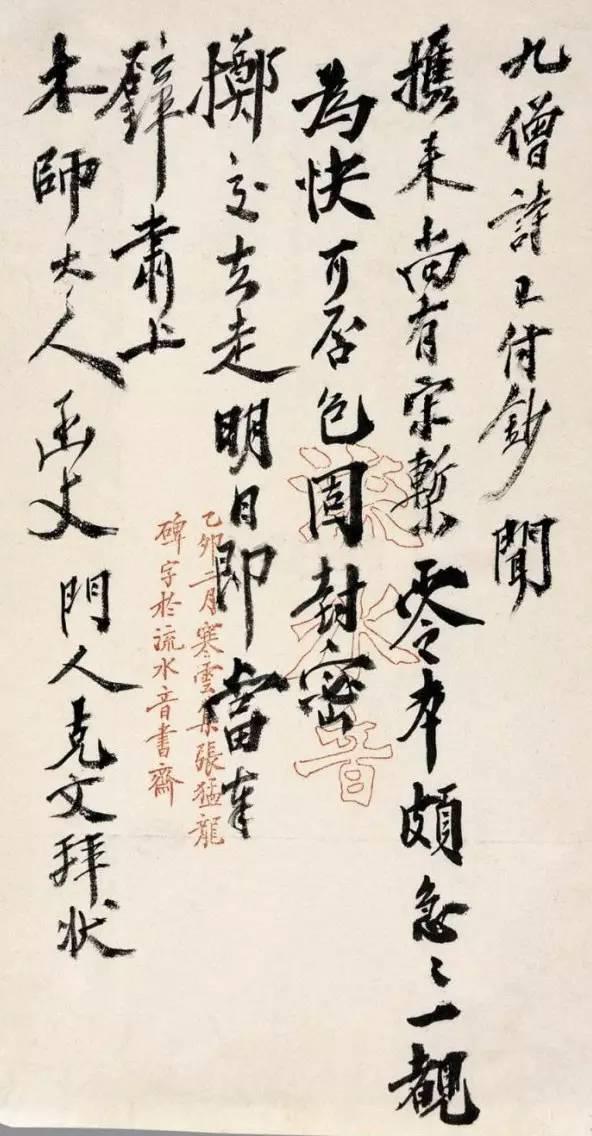 九僧詩已付鈔聞
攜来尚有宋槧零本頗急々一覩
為快可否包固封密
擲交去走明日即當奉
璧肅上
木師大人函丈門人克文拜状
流水音
乙卯二月寒雲集張猛龍
碑字於流水音書齋